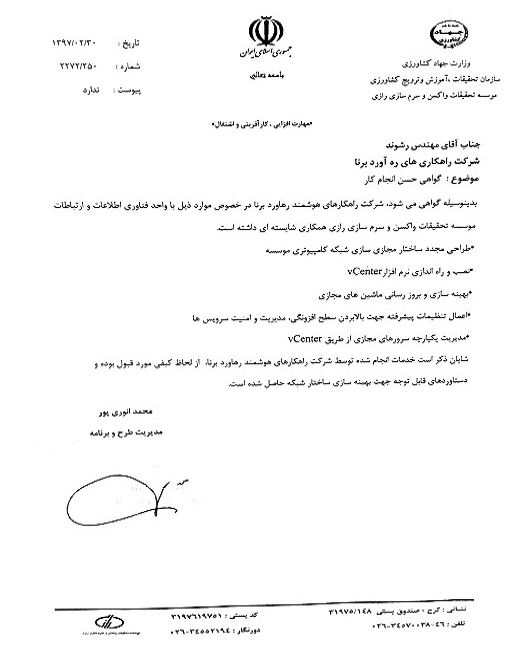 جهاد
کشاورزی
جمهوری اسلامی ایران
باسمه تعالی
تاریخ : ۱۳۹۷/۰۲/۳۰
شماره : ۲۲۷۲/۲۵۰
پیوست : ندارد
وزارت جهاد کشاورزی
سازمان تحقیقات ،آموزش وترویج کشاورزی
موسسه تحقیقات واکسن و سرم سازی رازی
«مهارت افزایی ، کارآفرینی و اشتغال»
جناب آقای مهندس رشوند
شرکت راهکاری های ره آورد برنا
موضوع : گواهی حسن انجام کار
بدینوسیله گواهی می شود، شرکت راهکارهای هوشمند رهاورد برنا در خصوص موارد ذیل با واحد فناوری اطلاعات و ارتباطات
موسسه تحقیقات واکسن و سرم سازی رازی همکاری شایسته ای داشته است.
•طراحی مجدد ساختار مجازی سازی شبکه کامپیوتری موسسه
•نصب و راه اندازی نرم افزارvCenter
•بهینه سازی و بروز رسانی ماشین های مجازی
•اعمال تنظیمات پیشرفته جهت بالابردن سطح افزونگی، مدیریت و امنیت سرویس ها
•مدیریت یکپارچه سرورهای مجازی از طریق vCenter
شایان ذکر است خدمات انجام شده توسط شرکت راهکارهای هوشمند رهاورد برنا، از لحاظ کیفی مورد قبول بوده و
دستاوردهای قابل توجه جهت بهینه سازی ساختار شبکه حاصل شده است.
محمد انوری پور
مدیریت طرح و برنامه
نشانی : کرج - صندوق پستی ۳۱۹۷۵/۱۴۸
کد پستی : ۳۱۹۷۶۱۹۷۵۱
تلفن : ۴۶-۰۲۶-۳۴۵۷۰۰۳۸
دورنگار : ۰۲۶-۳۴۵۵۲۱۹۴